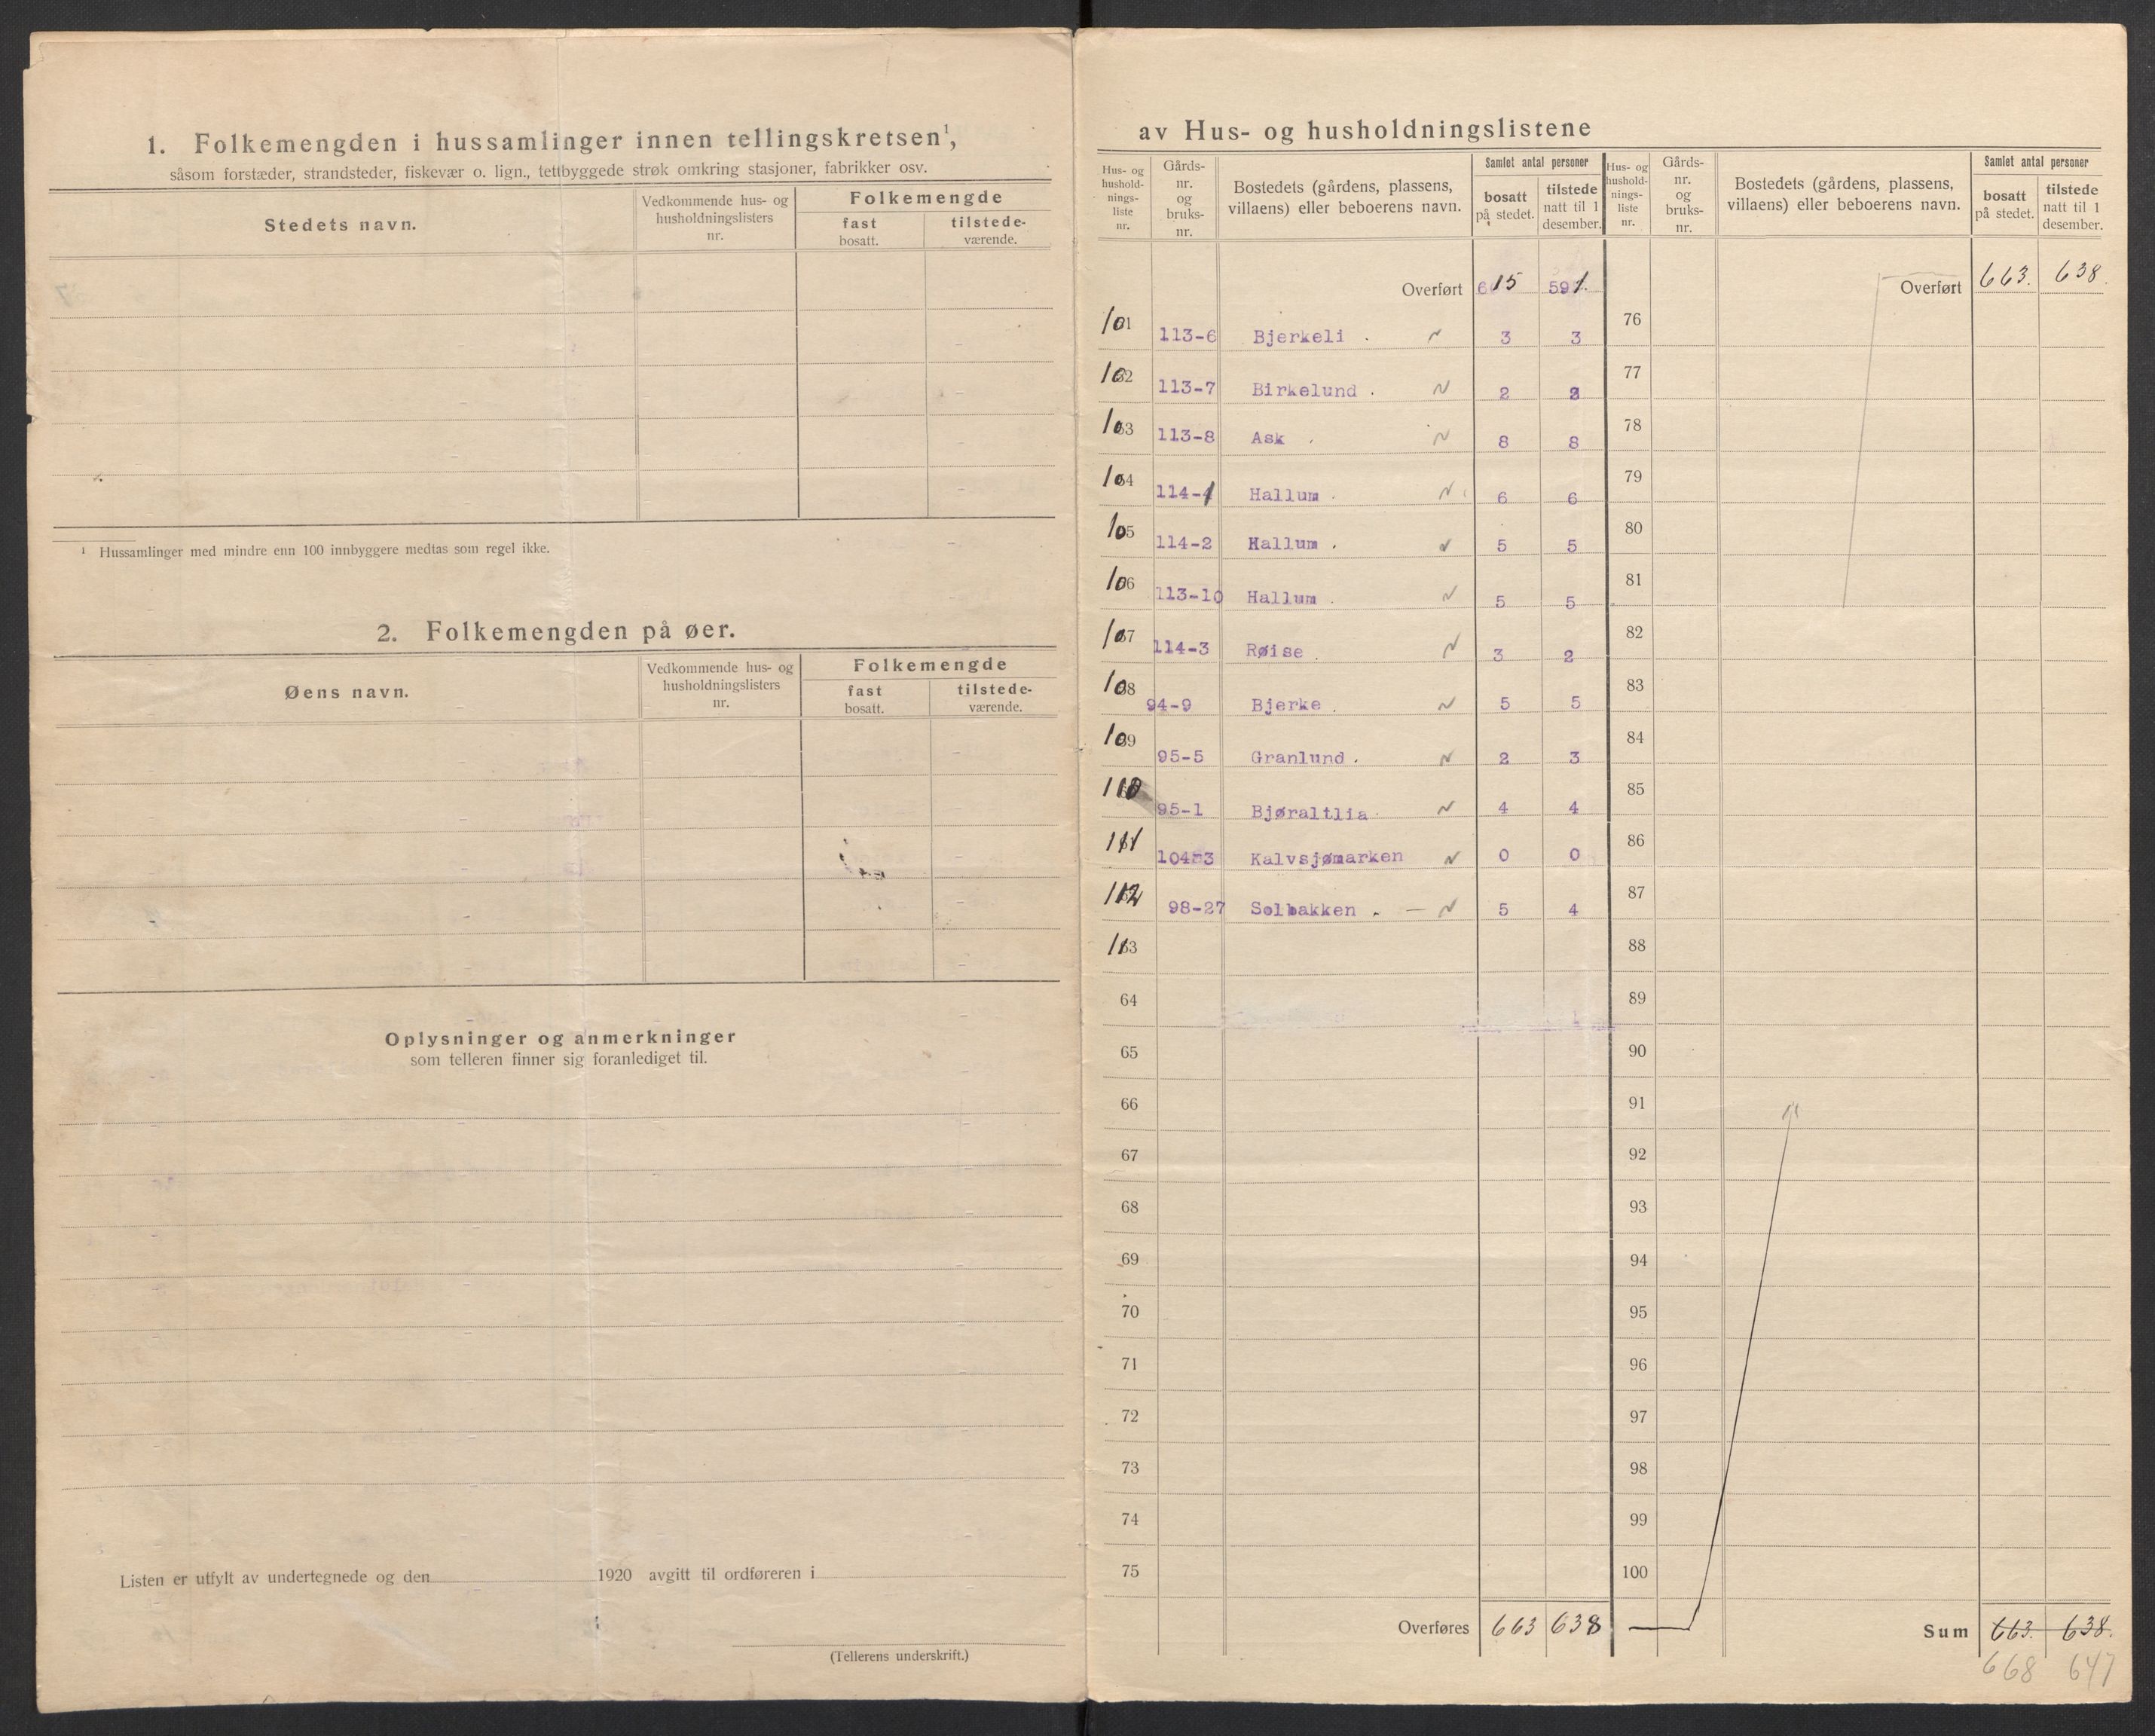 1. Folkemengden i hussamlinger innen tellingskretsen¹,
såsom forstæder, strandsteder, fiskevær o. lign., tettbyggede strøk omkring stasjoner, fabrikker osv.
Stedets navn.
Vedkommende hus- og
husholdningslisters
nr.
Folkemengde
fast
bosatt.
tilstede-
værende.
¹ Hussamlinger med mindre enn 100 innbyggere medtas som regel ikke.
2. Folkemengden på øer.
Øens navn.
Vedkommende hus- og
husholdningslisters
nr.
Folkemengde
fast
bosatt.
tilstede-
værende.
Oplysninger og anmerkninger
som telleren finner sig foranlediget til.
Listen er utfylt av undertegnede og den 1920 avgitt til ordføreren i
(Tellerens underskrift.)
av Hus- og husholdningslistene
Hus- og
hushold-
nings-
liste
nr.
Gårds-
nr.
og
bruks-
nr.
Bostedets (gårdens, plassens,
villaens) eller beboerens navn.
Samlet antal personer
bosatt
på stedet.
tilstede
natt til 1
desember.
Hus- og
hushold-
nings-
liste
nr.
Gårds-
nr.
og
bruks-
nr.
Bostedets (gårdens, plassens,
villaens) eller beboerens navn.
Samlet antal personer
bosatt
på stedet.
tilstede
natt til 1
desember.
Overført 615 591.
101 113-6 Bjerkeli . 3 3
102 113-7 Birkelund . 2
103 113-8 Ask . 8 8
104 114-1 Hallum . 6 6
105 114-2 Hallum . 5 5
106 113-10 Hallum . 5 5
107 114-3 Røise . 3 2
108 94-9 Bjerke . 5 5
109 95-5 Granlund . 2 3
110 95-1 Bjøraltlia 4 4
111 104-3 Kalvsjømarken 0 0
112 98-27 Solbakken . — 5 4
113
64
65
66
67
68
69
70
71
72
73
74
75
Overføres 663 638
Overført 663. 638.
76
77
78
79
80
81
82
83
84
85
86
87
88
89
90
91
92
93
94
95
96
97
98
99
100
Sum 663. 638.
668 647